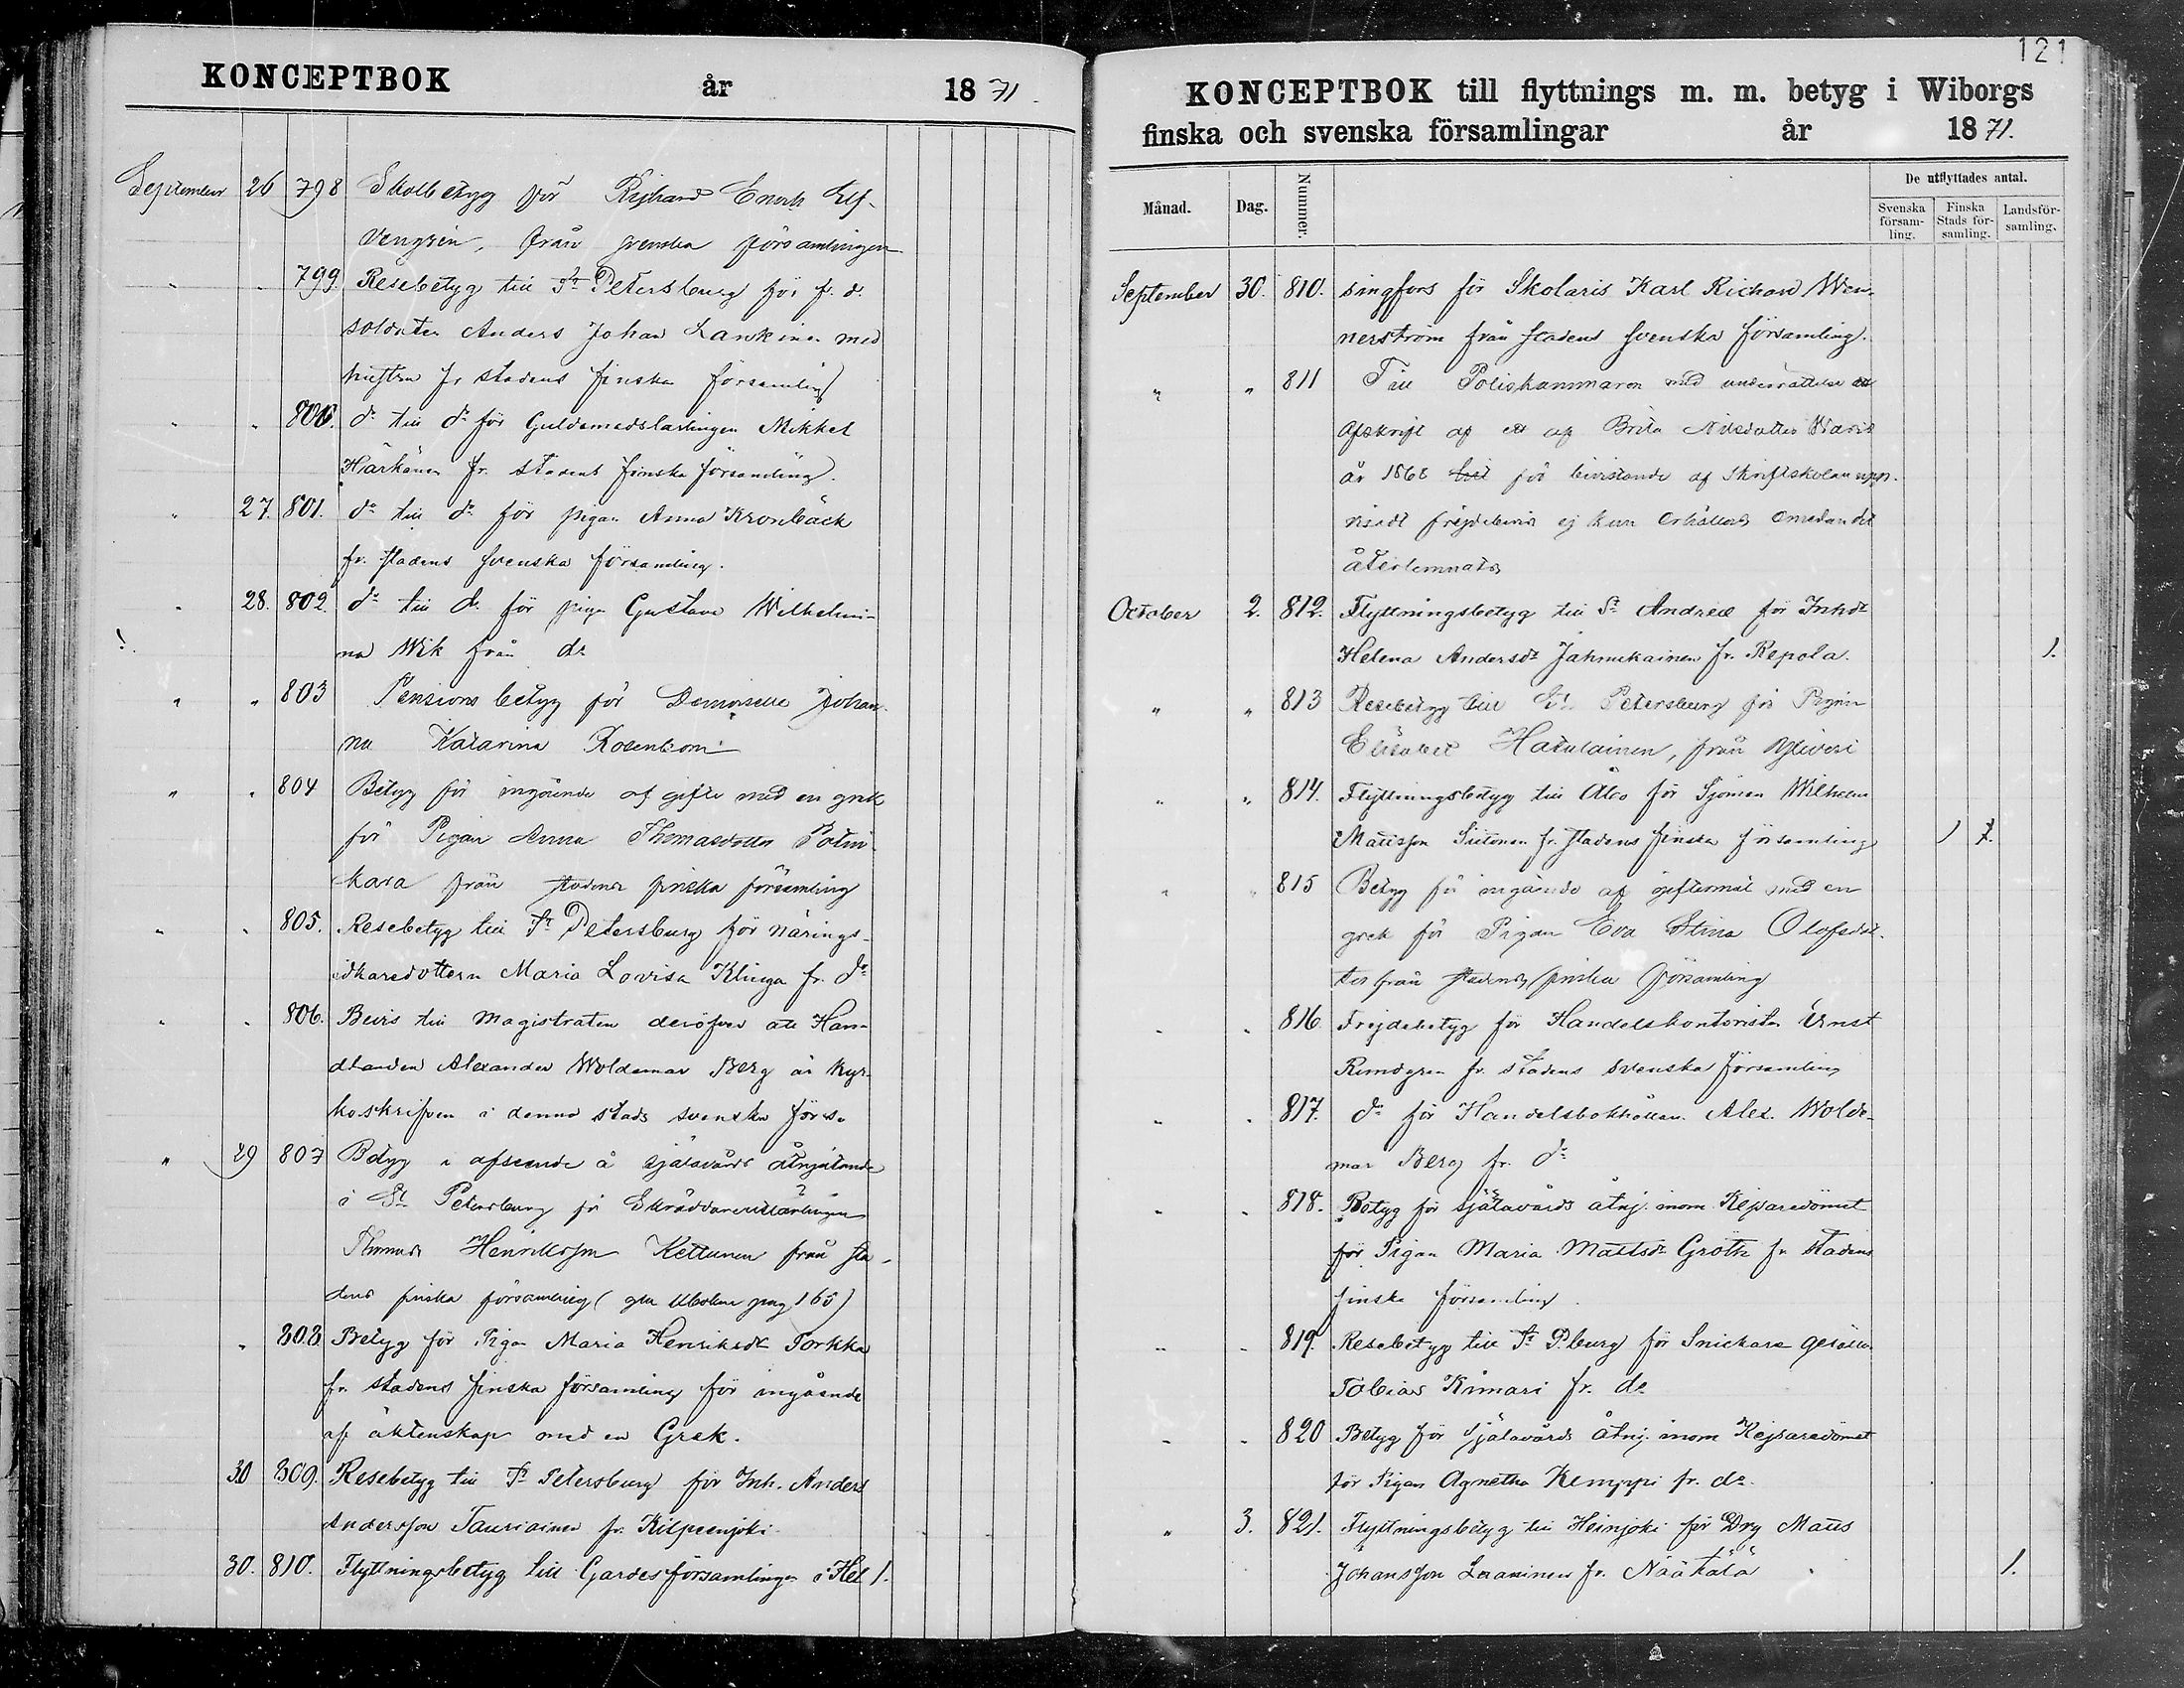 KONCEPTBOK år 1871.
September 26 798 Skolbetyg för Rijhard Enoch Elf-
vengren, från svenska församlingen
" " 799. Resebetyg till St Petersburg för f. d.
soldaten Anders Johan Lankinen med
hustru fr stadens finska församling
" " 800. do till do för Guldsmedslärlingen Mikkel
Härkönen fr. stadens finska församling.
" 27. 801. do till do för pigan Anna Kronbäck
fr. stadens svenska församling.
" 28. 802. do till do för pigan Gustava Wilhelmi-
na Wik från do
" " 803 Pensions betyg för Demoiselle Johan-
na Katarina Rosenbom
" " 804 Betyg för ingående af gifte med en grek
för Pigan Anna Thomasdotter
från stadens finska församling
" " 805. Resebetyg till St Petersburg för närings-
idkaredottern Maria Lovisa Klinga fr. do
" " 806. Bevis till Magistraten deröfver att Han-
dlanden Alexander Woldemar Berg är kyr-
koskrifven i denna stads svenska förs.
" 29 807 Betyg i afseende å själavårds åtnjutande
i St Petersburg för Skräddarelärlingen
Thomas Henriksson Kettunen från sta-
dens finska församling ( pag 165)
" 808 Betyg för Pigan Maria Henriksdr Torkka
fr. stadens finska församling för ingående
af äktenskap med en Grek.
30 809. Resebetyg till St Petersburg för Inh. Anders
Andersson Tauriainen fr. Kilpeenjoki
30. 810. Flyttningsbetyg till Gardesförsamlingen i Hel 1.
121
KONCEPTBOK till flyttnings m. m. betyg i Wiborgs
finska och svenska församlingar år 1871.
Månad. Dag. Nummer. De utflyttades antal.
Svenska församling. Finska Stads församling. Landsförsamling.
September 30. 810. singfors för Skolaris Karl Richard Wen-
nerström från stadens svenska församling.
" " 811 Till Poliskammaren med underrättelse att
Afskrift af ett af Brita Nilsdotter Waris
år 1868 för bevistande af Skriftskolan upp-
visadt frejdebevis ej kan erhållas emedan det
återlemnats
October 2. 812. Flyttningsbetyg till St Andreæ för Inhdr
Helena Andersdr Jahnukainen fr. Repola. 1.
" " 813 Resebetyg till St. Petersburg för Pigan
Elisabet Hatulainen, från Yliveri
" " 814. Flyttningsbetyg till Åbo för Sjöman Wilhelm
Mattsson Siitonen fr. stadens finska församling 1
" " 815 Betyg för ingående af giftermål med en
grek för Pigan Eva Stina Olofsdot-
ter från stadens finska församling
" " 816. Frejdebetyg för Handelskontoristen Ernst
Rundgren fr. stadens svenska församling
" " 817. do för Handelsbokhållaren Alex. Wolde-
mar Berg fr. do
" " 818. Betyg för själavårds åtnj. inom Kejsaredömet
för Pigan Maria Mattsdr Gröth fr. stadens
finska församling.
" " 819. Resebetyg till St P.burg för Snickare gesällen
Tobias Kimari fr. do
" " 820 Betyg för Själavårds åtnj. inom Kejsaredömet
för Pigan Agnetha Kemppi fr. do.
" 3. 821. Flyttningsbetyg till Heinjoki för Drg Matts
Johansson fr. Näätälä 1.